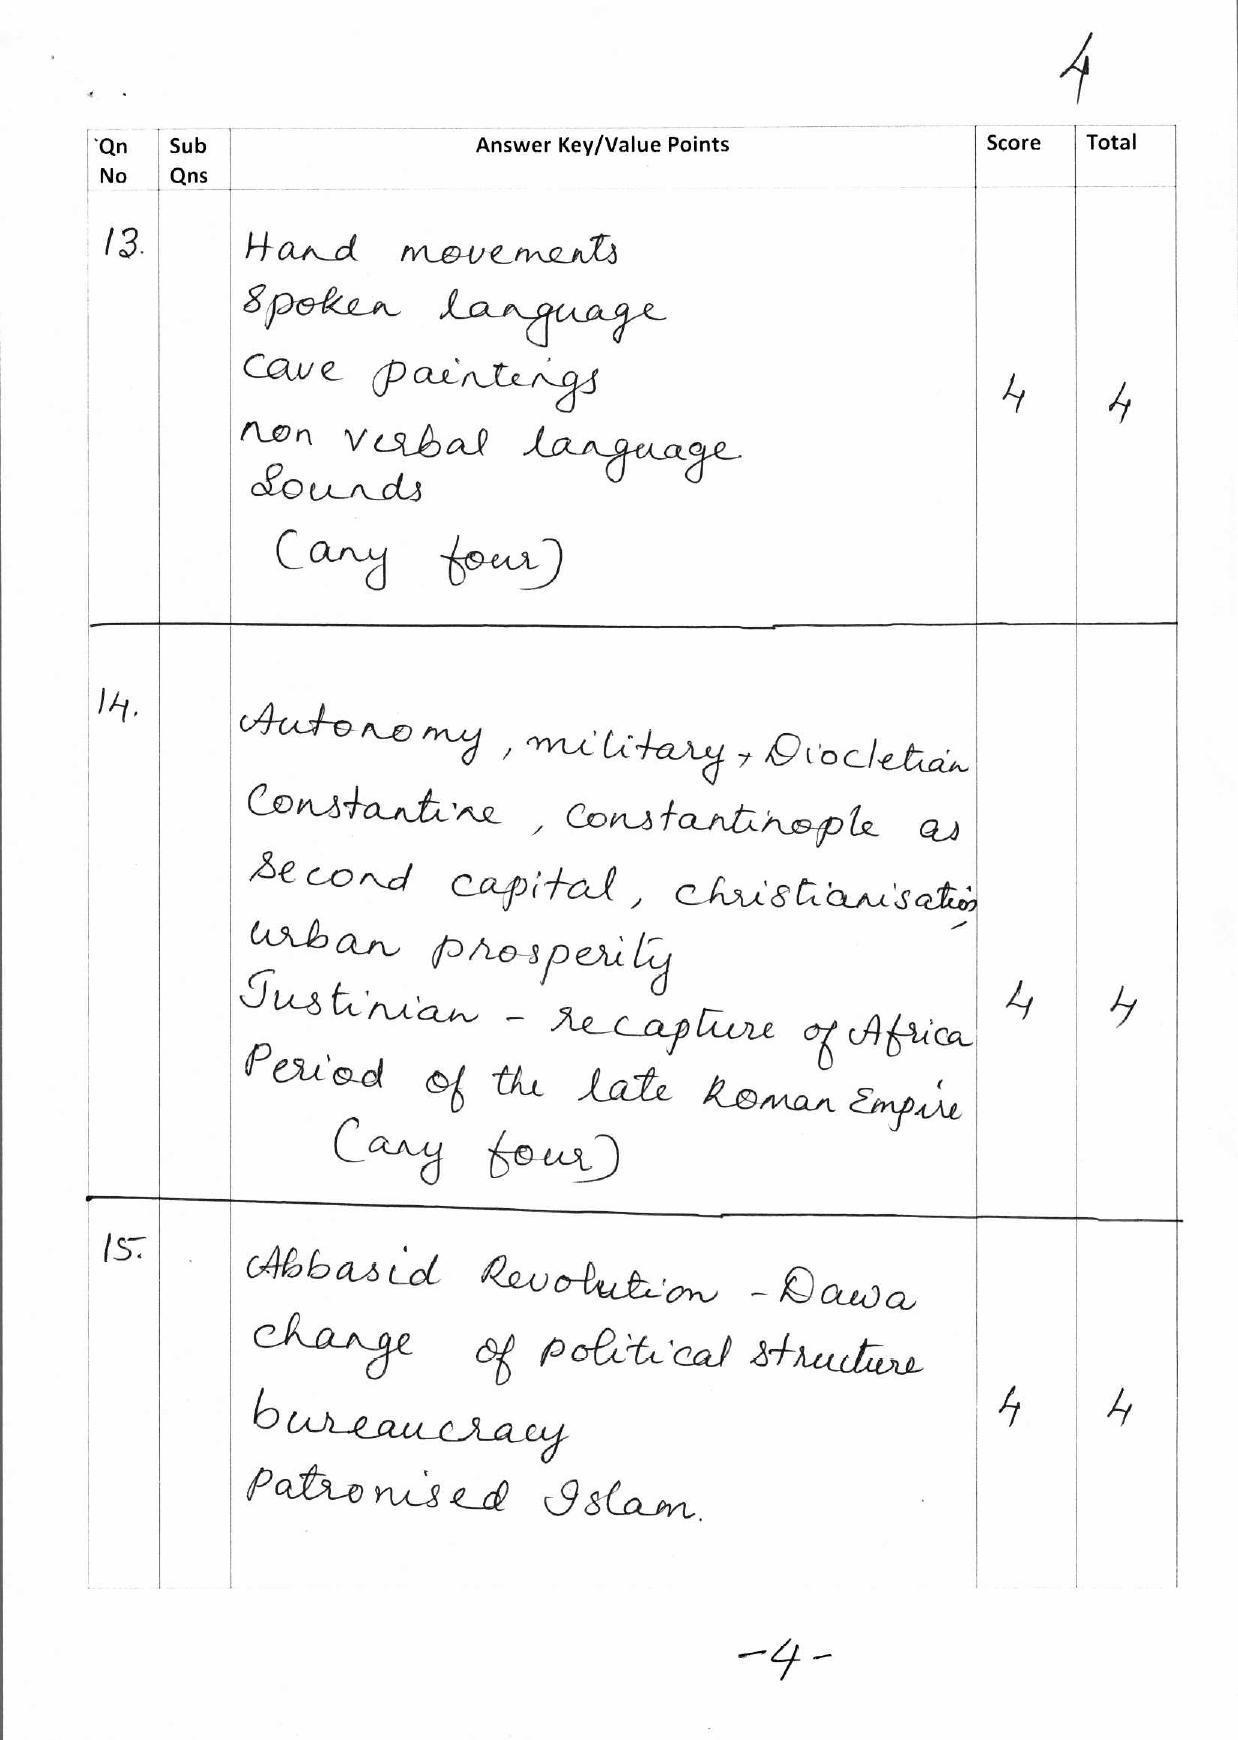 4
Qn No Sub Qns Answer Key/Value Points Score Total
13. Hand movements
Spoken language
Cave paintings
non verbal language
Sounds
(any four)
4 4
14. Autonomy, military, Diocletian
Constantine, Constantinople as
second capital, christianisation
urban prosperity
Justinian - recapture of Africa
Period of the late Roman Empire
(any four)
4 4
15. Abbasid Revolution - Dawa
change of political structure
bureaucracy
Patronised Islam.
4 4
-4-